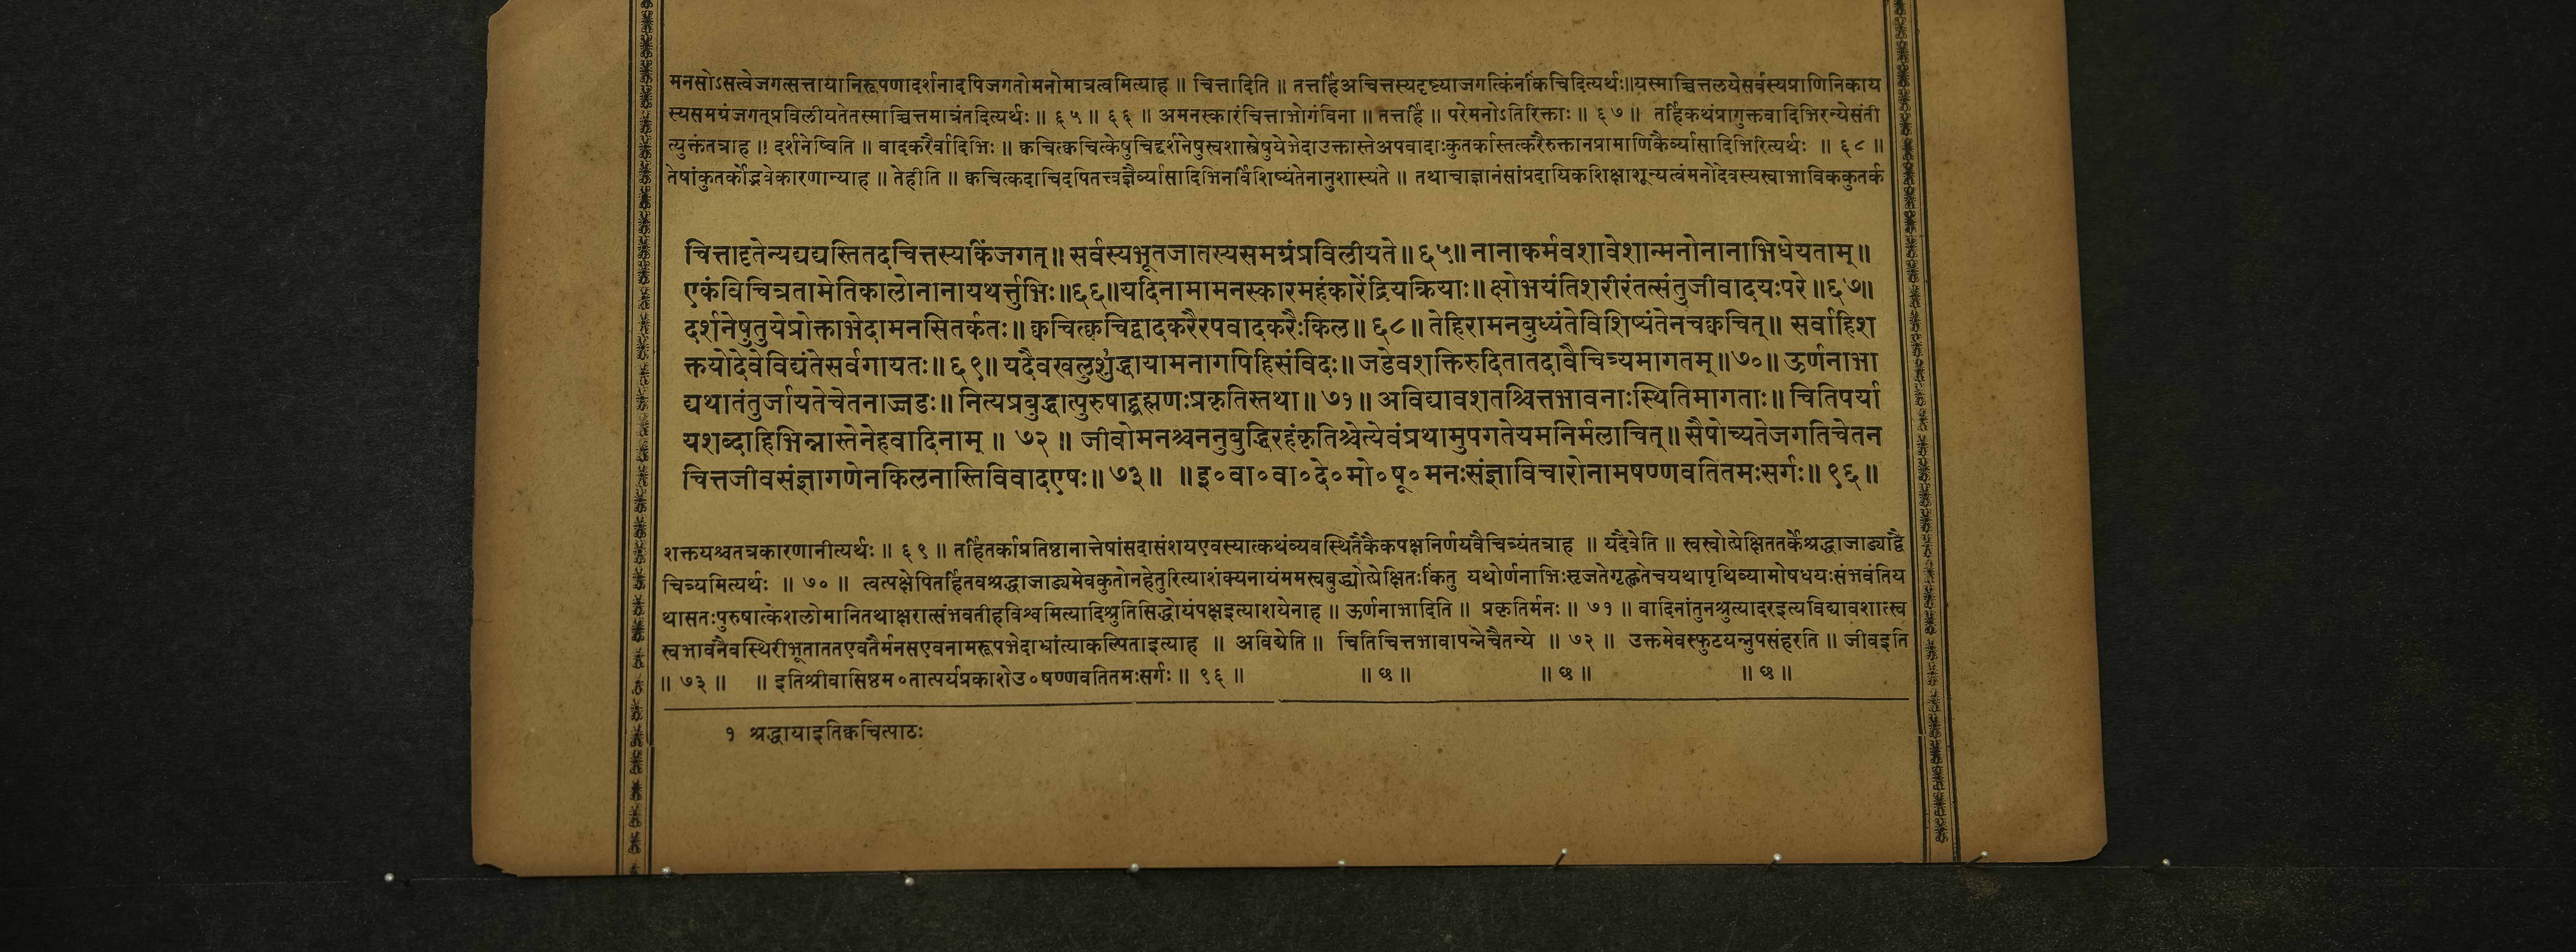 मनसोऽसत्वेजगत्सत्तायानिरूपणादर्शनादपिजगतोमनोमात्रत्वमित्याह ॥ चित्तादिति ॥ तत्तर्हिअचित्तस्यदृष्ट्याजगत्किंनकिंचिदित्यर्थः॥यस्माच्चित्तलयेसर्वस्यप्राणिनिकाय
स्यसमग्रंजगत्प्रविलीयतेतस्माच्चित्तमात्रंतदित्यर्थः ॥ ६५ ॥ ६६ ॥ अमनस्कारंचित्ताभोगंविना ॥ तत्तर्हि ॥ परेमनोऽतिरिक्ताः ॥ ६७ ॥ तर्हिकथंप्रागुक्तवादिभिरन्येसंती
त्युक्तंतत्राह ॥ दर्शनेष्विति ॥ वादकरैर्वादिभिः ॥ क्वचित्क्वचित्केषुचिद्दर्शनेषुस्वशास्त्रेषुयेभेदाउक्तास्तेअपवादाःकुतर्कास्तत्करैरुक्तानप्रामाणिकैर्व्यासादिभिरित्यर्थः ॥ ६८ ॥
तेषांकुतर्कोद्भवेकारणान्याह ॥ तेहीति ॥ क्वचित्कदाचिदपितत्त्वज्ञैर्व्यासादिभिर्नविशिष्यंतेनानुशास्यते ॥ तथाचाज्ञानंसांप्रदायिकशिक्षाशून्यत्वंमनोदेवस्यस्वाभाविककुतर्क
चित्तादृतेन्यद्यद्यस्तितदचित्तस्यकिंजगत्॥ सर्वस्यभूतजातस्यसमग्रंप्रविलीयते॥ ६५॥ नानाकर्मवशावेशान्मनोनानाभिधेयताम्॥
एकंविचित्रतामेतिकालोनानायथर्त्तुभिः॥६६॥यदिनामामनस्कारमहंकारेंद्रियक्रियाः॥ क्षोभयंतिशरीरंतत्संतुजीवादयःपरे॥६७॥
दर्शनेषुतुयेप्रोक्ताभेदामनसितर्कतः॥ क्वचित्क्वचिद्वादकरैरपवादकरैःकिल॥ ६८॥ तेहिरामनबुध्यंतेविशिष्यंतेनचक्वचित्॥ सर्वाहिश
क्तयोदेवेविद्यंतेसर्वगायतः॥ ६९॥ यदैवखलुशुद्धायामनागपिहिसंविदः॥ जडेवशक्तिरुदितातदावैचित्र्यमागतम्॥७०॥ ऊर्णनाभा
द्यथातंतुर्जायतेचेतनाज्जडः॥ नित्यप्रबुद्धात्पुरुषाद्ब्रह्मणःप्रकृतिस्तथा॥ ७१॥ अविद्यावशतश्चित्तभावनाःस्थितिमागताः॥ चितिपर्या
यशब्दाहिभिन्नास्तेनेहवादिनाम् ॥ ७२ ॥ जीवोमनश्चननुबुद्धिरहंकृतिश्चेत्येवंप्रथामुपगतेयमनिर्मलाचित्॥ सैषोच्यतेजगतिचेतन
चित्तजीवसंज्ञागणेनकिलनास्तिविवादएषः॥ ७३॥ ॥ इ०वा०वा०दे०मो०षू०मनःसंज्ञाविचारोनामषण्णवतितमःसर्गः॥ ९६॥
शक्तयश्चतत्रकारणानीत्यर्थः ॥ ६९ ॥ तर्हितर्काप्रतिष्ठानात्तेषांसदासंशयएवस्यात्कथंव्यवस्थितैकैकपक्षनिर्णयवैचित्र्यंतत्राह ॥ यदैवेति ॥ स्वस्वोत्प्रेक्षिततर्केश्रद्धाजाड्याद्वै
चित्र्यमित्यर्थः ॥ ७० ॥ त्वत्पक्षेपितर्हितवश्रद्धाजाड्यमेवकुतोनहेतुरित्याशंक्यनायंममस्वबुद्ध्योत्प्रेक्षितःकिंतु यथोर्णनाभिःसृजतेगृह्णतेचयथापृथिव्यामोषधयःसंभवंतिय
थासतःपुरुषात्केशलोमानितथाक्षरात्संभवतीहविश्वमित्यादिश्रुतिसिद्धोयंपक्षइत्याशयेनाह ॥ ऊर्णनाभादिति ॥ प्रकृतिर्मनः ॥ ७१ ॥ वादिनांतुनश्रुत्यादरइत्यविद्यावशात्स्व
स्वभावनैवस्थिरीभूताततएवतैर्मनसएवनामरूपभेदाभ्रांत्याकल्पिताइत्याह ॥ अविद्येति ॥ चितिचित्तभावापन्नेचैतन्ये ॥ ७२ ॥ उक्तमेवस्फुटयन्नुपसंहरति ॥ जीवइति
॥ ७३ ॥ ॥ इतिश्रीवासिष्ठम०तात्पर्यप्रकाशेउ०षण्णवतितमःसर्गः ॥ ९६ ॥ ॥ छ ॥ ॥ छ ॥ ॥ छ ॥
१ श्रद्धायाइतिक्वचित्पाठः